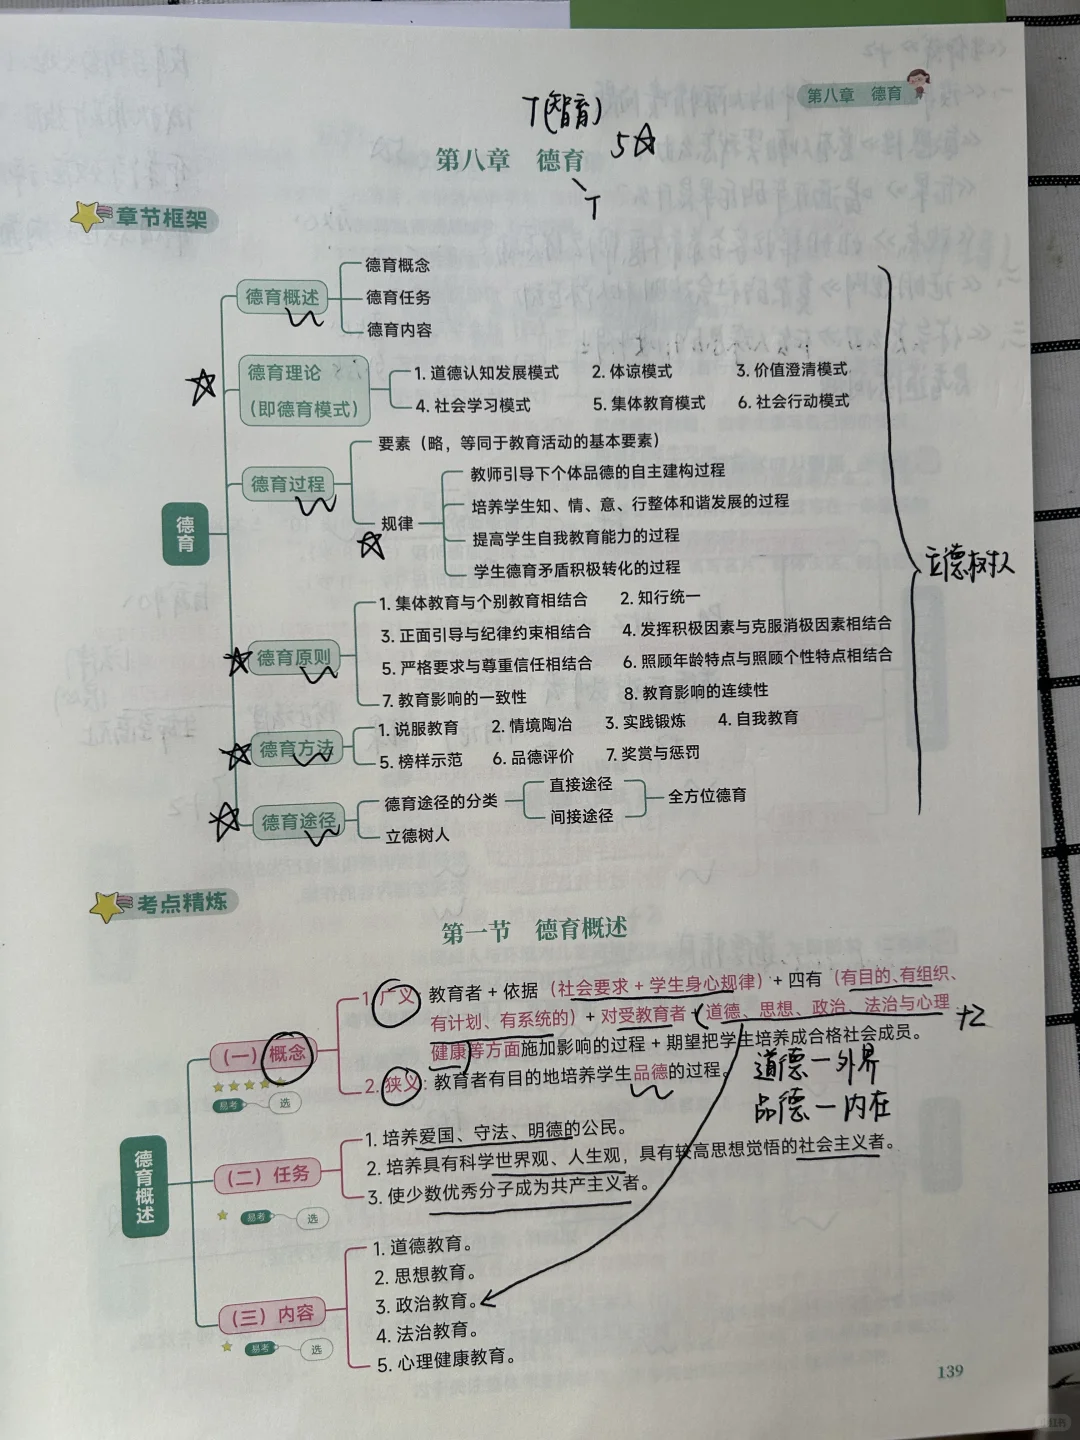 第八章 德育
T(智育)
第八章 德育 5☆
T
章节框架
德育
德育概述
德育概念
德育任务
德育内容
德育理论
（即德育模式）
1. 道德认知发展模式 2. 体谅模式 3. 价值澄清模式
4. 社会学习模式 5. 集体教育模式 6. 社会行动模式
德育过程
要素（略，等同于教育活动的基本要素）
规律
教师引导下个体品德的自主建构过程
培养学生知、情、意、行整体和谐发展的过程
提高学生自我教育能力的过程
学生德育矛盾积极转化的过程
德育原则
1. 集体教育与个别教育相结合 2. 知行统一
3. 正面引导与纪律约束相结合 4. 发挥积极因素与克服消极因素相结合
5. 严格要求与尊重信任相结合 6. 照顾年龄特点与照顾个性特点相结合
7. 教育影响的一致性 8. 教育影响的连续性
德育方法
1. 说服教育 2. 情境陶冶 3. 实践锻炼 4. 自我教育
5. 榜样示范 6. 品德评价 7. 奖赏与惩罚
德育途径
德育途径的分类
直接途径
间接途径
全方位德育
立德树人
立德树人
考点精炼
第一节 德育概述
德育概述
（一）概念
易考 选
1. 广义：教育者 + 依据（社会要求 + 学生身心规律）+ 四有（有目的、有组织、
有计划、有系统的）+ 对受教育者 + 道德、思想、政治、法治与心理
+2
健康等方面施加影响的过程 + 期望把学生培养成合格社会成员。
2. 狭义：教育者有目的地培养学生品德的过程。
道德一外界
品德一内在
（二）任务
易考 选
1. 培养爱国、守法、明德的公民。
2. 培养具有科学世界观、人生观，具有较高思想觉悟的社会主义者。
3. 使少数优秀分子成为共产主义者。
（三）内容
易考 选
1. 道德教育。
2. 思想教育。
3. 政治教育。
4. 法治教育。
5. 心理健康教育。
139